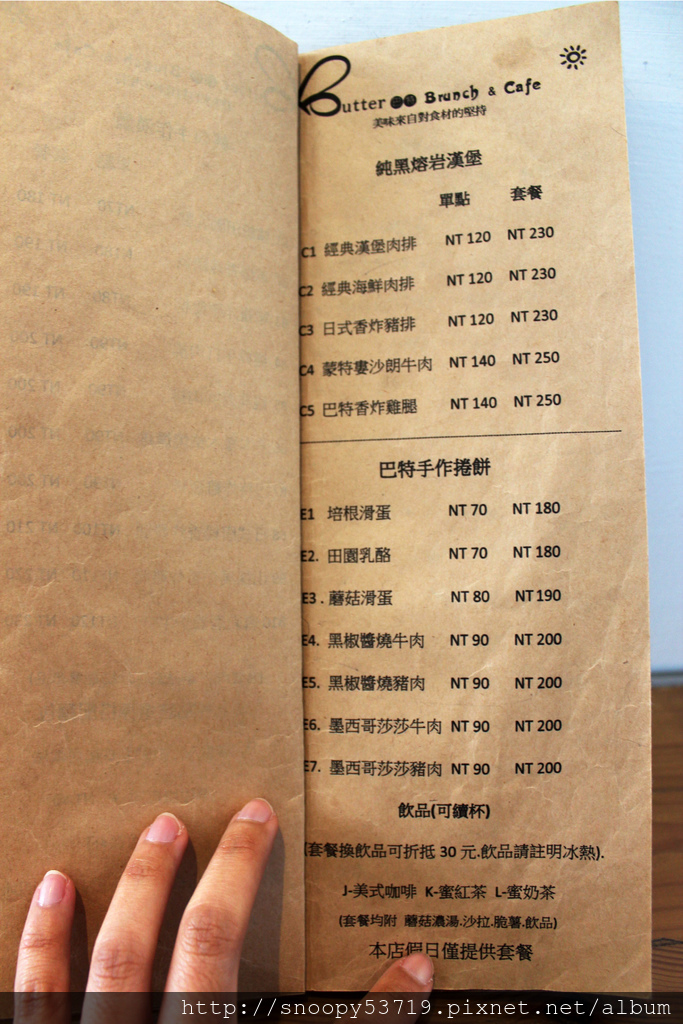 Butter Brunch & Cafe
美味來自對食材的堅持
純黑熔岩漢堡
單點 套餐
C1 經典漢堡肉排 NT 120 NT 230
C2 經典海鮮肉排 NT 120 NT 230
C3 日式香炸豬排 NT 120 NT 230
C4 蒙特婁沙朗牛肉 NT 140 NT 250
C5 巴特香炸雞腿 NT 140 NT 250
巴特手作捲餅
E1 培根滑蛋 NT 70 NT 180
E2. 田園乳酪 NT 70 NT 180
E3 . 蘑菇滑蛋 NT 80 NT190
E4. 黑椒醬燒牛肉 NT 90 NT 200
E5. 黑椒醬燒豬肉 NT 90 NT 200
E6. 墨西哥莎莎牛肉 NT 90 NT 200
E7. 墨西哥莎莎豬肉 NT 90 NT 200
飲品(可續杯)
(套餐換飲品可折抵 30 元.飲品請註明冰熱).
J-美式咖啡 K-蜜紅茶 L-蜜奶茶
(套餐均附 蘑菇濃湯.沙拉.脆薯.飲品)
本店假日僅提供套餐
http://snoopy53719.pixnet.net/album